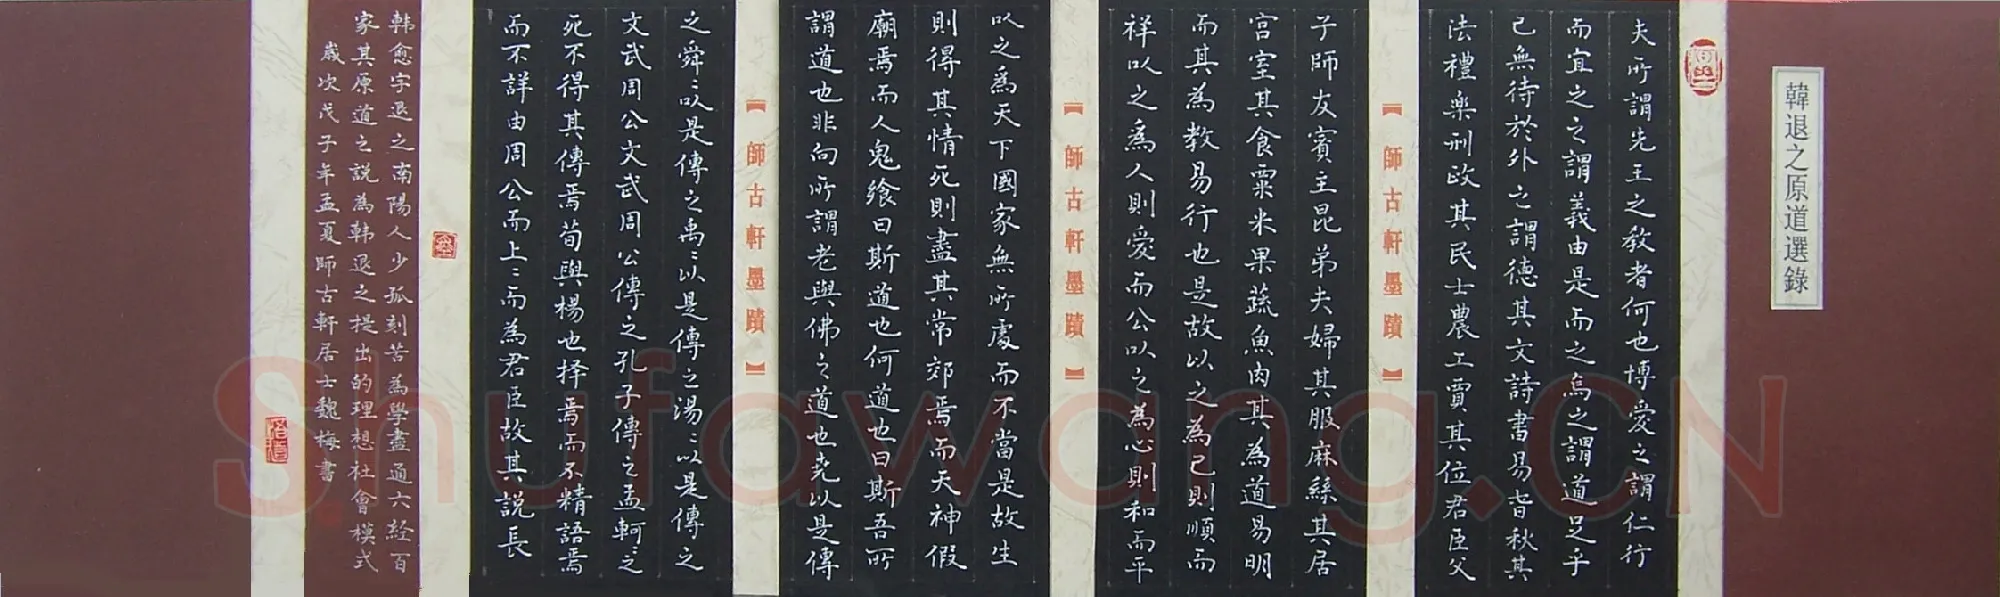 韓退之原道選錄
夫所謂先王之教者何也博愛之謂仁行
而宜之之謂義由是而之焉之謂道足乎
己無待於外之謂德其文詩書易春秋其
法禮樂刑政其民士農工賈其位君臣父
子師友賓主昆弟夫婦其服麻絲其居
宮室其食粟米果蔬魚肉其為道易明
而其為教易行也是故以之為己則順而
祥以之為人則愛而公以之為心則和而平
以之為天下國家無所處而不當是故生
則得其情死則盡其常郊焉而天神假
廟焉而人鬼飨曰斯道也何道也曰斯吾所
謂道也非向所謂老與佛之道也堯以是傳
之舜舜以是傳之禹禹以是傳之湯湯以是傳之
文武周公文武周公傳之孔子傳之孟軻軻之
死不得其傳焉荀與楊也择焉而不精語焉
而不詳由周公而上上而為君臣故其説長
韩愈字退之南陽人少孤刻苦為學盡通六経百
家其原道之説為韩退之提出的理想社會模式
歲次戊子年孟夏師古軒居士魏梅書
【師古軒墨蹟】
【師古軒墨蹟】
【師古軒墨蹟】
Shufawang.CN